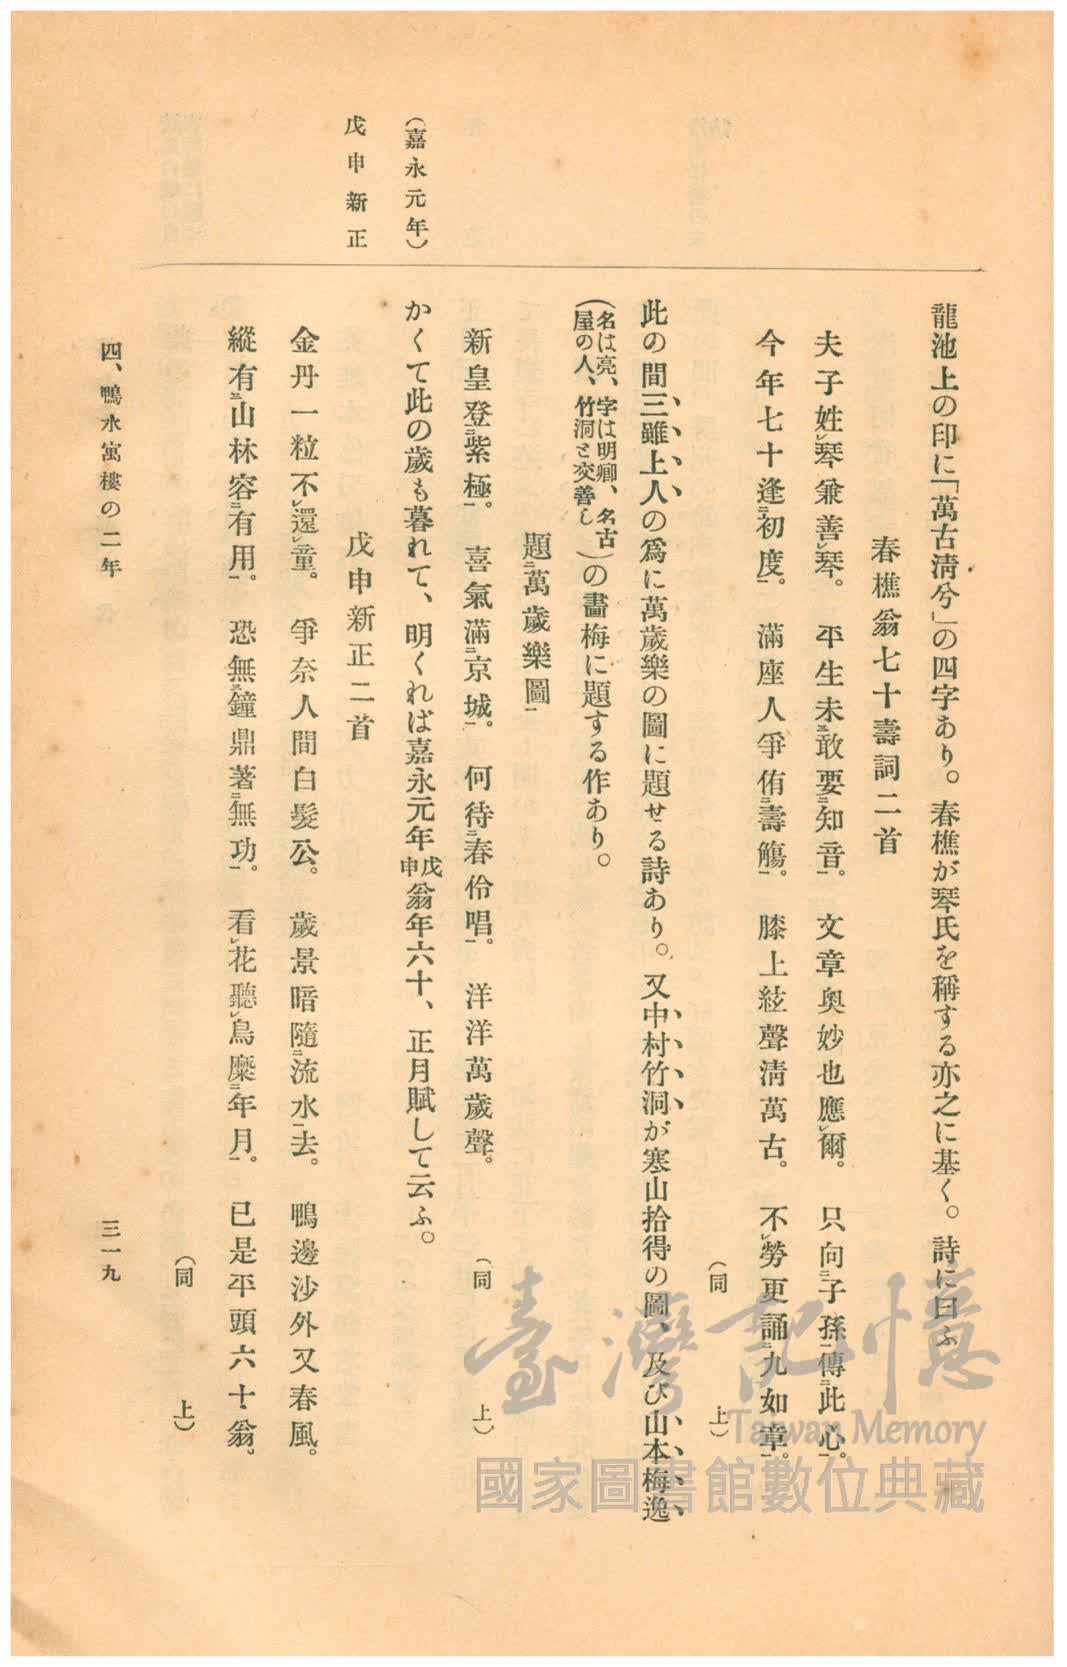 (嘉永元年)
戊申新正
龍池上の印に「萬古淸兮」の四字あり。春樵が琴氏を稱する亦之に基く。詩に曰ふ
春樵翁七十壽詞二首
夫子姓㆑琴兼善㆑琴。 平生未㆔敢要㆓知音㆒。 文章奧妙也應㆑爾。 只向㆓子孫㆒傳㆓此心㆒。
今年七十逢㆓初度㆒。 滿座人爭侑㆓壽觴㆒。 膝上絃聲淸萬古。 不㆑勞更誦㆓九如章㆒。
(同 上)
此の間三雖上人の爲に萬歲樂の圖に題せる詩あり。又中村竹洞が寒山拾得の圖、及び山本梅逸
(名は亮、字は明卿、名古屋の人、竹洞と交善し)の畵梅に題する作あり。
題㆓萬歲樂圖㆒
新皇登㆓紫極㆒。 喜氣滿㆓京城㆒。 何待㆓春伶唱㆒。 洋洋萬歲聲。
(同 上)
かくて此の歲も暮れて、明くれば嘉永元年戊申翁年六十、正月賦して云ふ。
戊申新正二首
金丹一粒不㆑還㆑童。 爭奈人間白髮公。 歲景暗隨㆓流水㆒去。 鴨邊沙外又春風。
縱有㆔山林容㆓有用㆒。 恐無㆔鐘鼎著㆓無功㆒。 看㆑花聽㆑鳥糜㆓年月㆒。 已是平頭六十翁。
(同 上)
四、鴨水寓樓の二年
三一九
臺灣記憶
Taiwan Memory
國家圖書館數位典藏